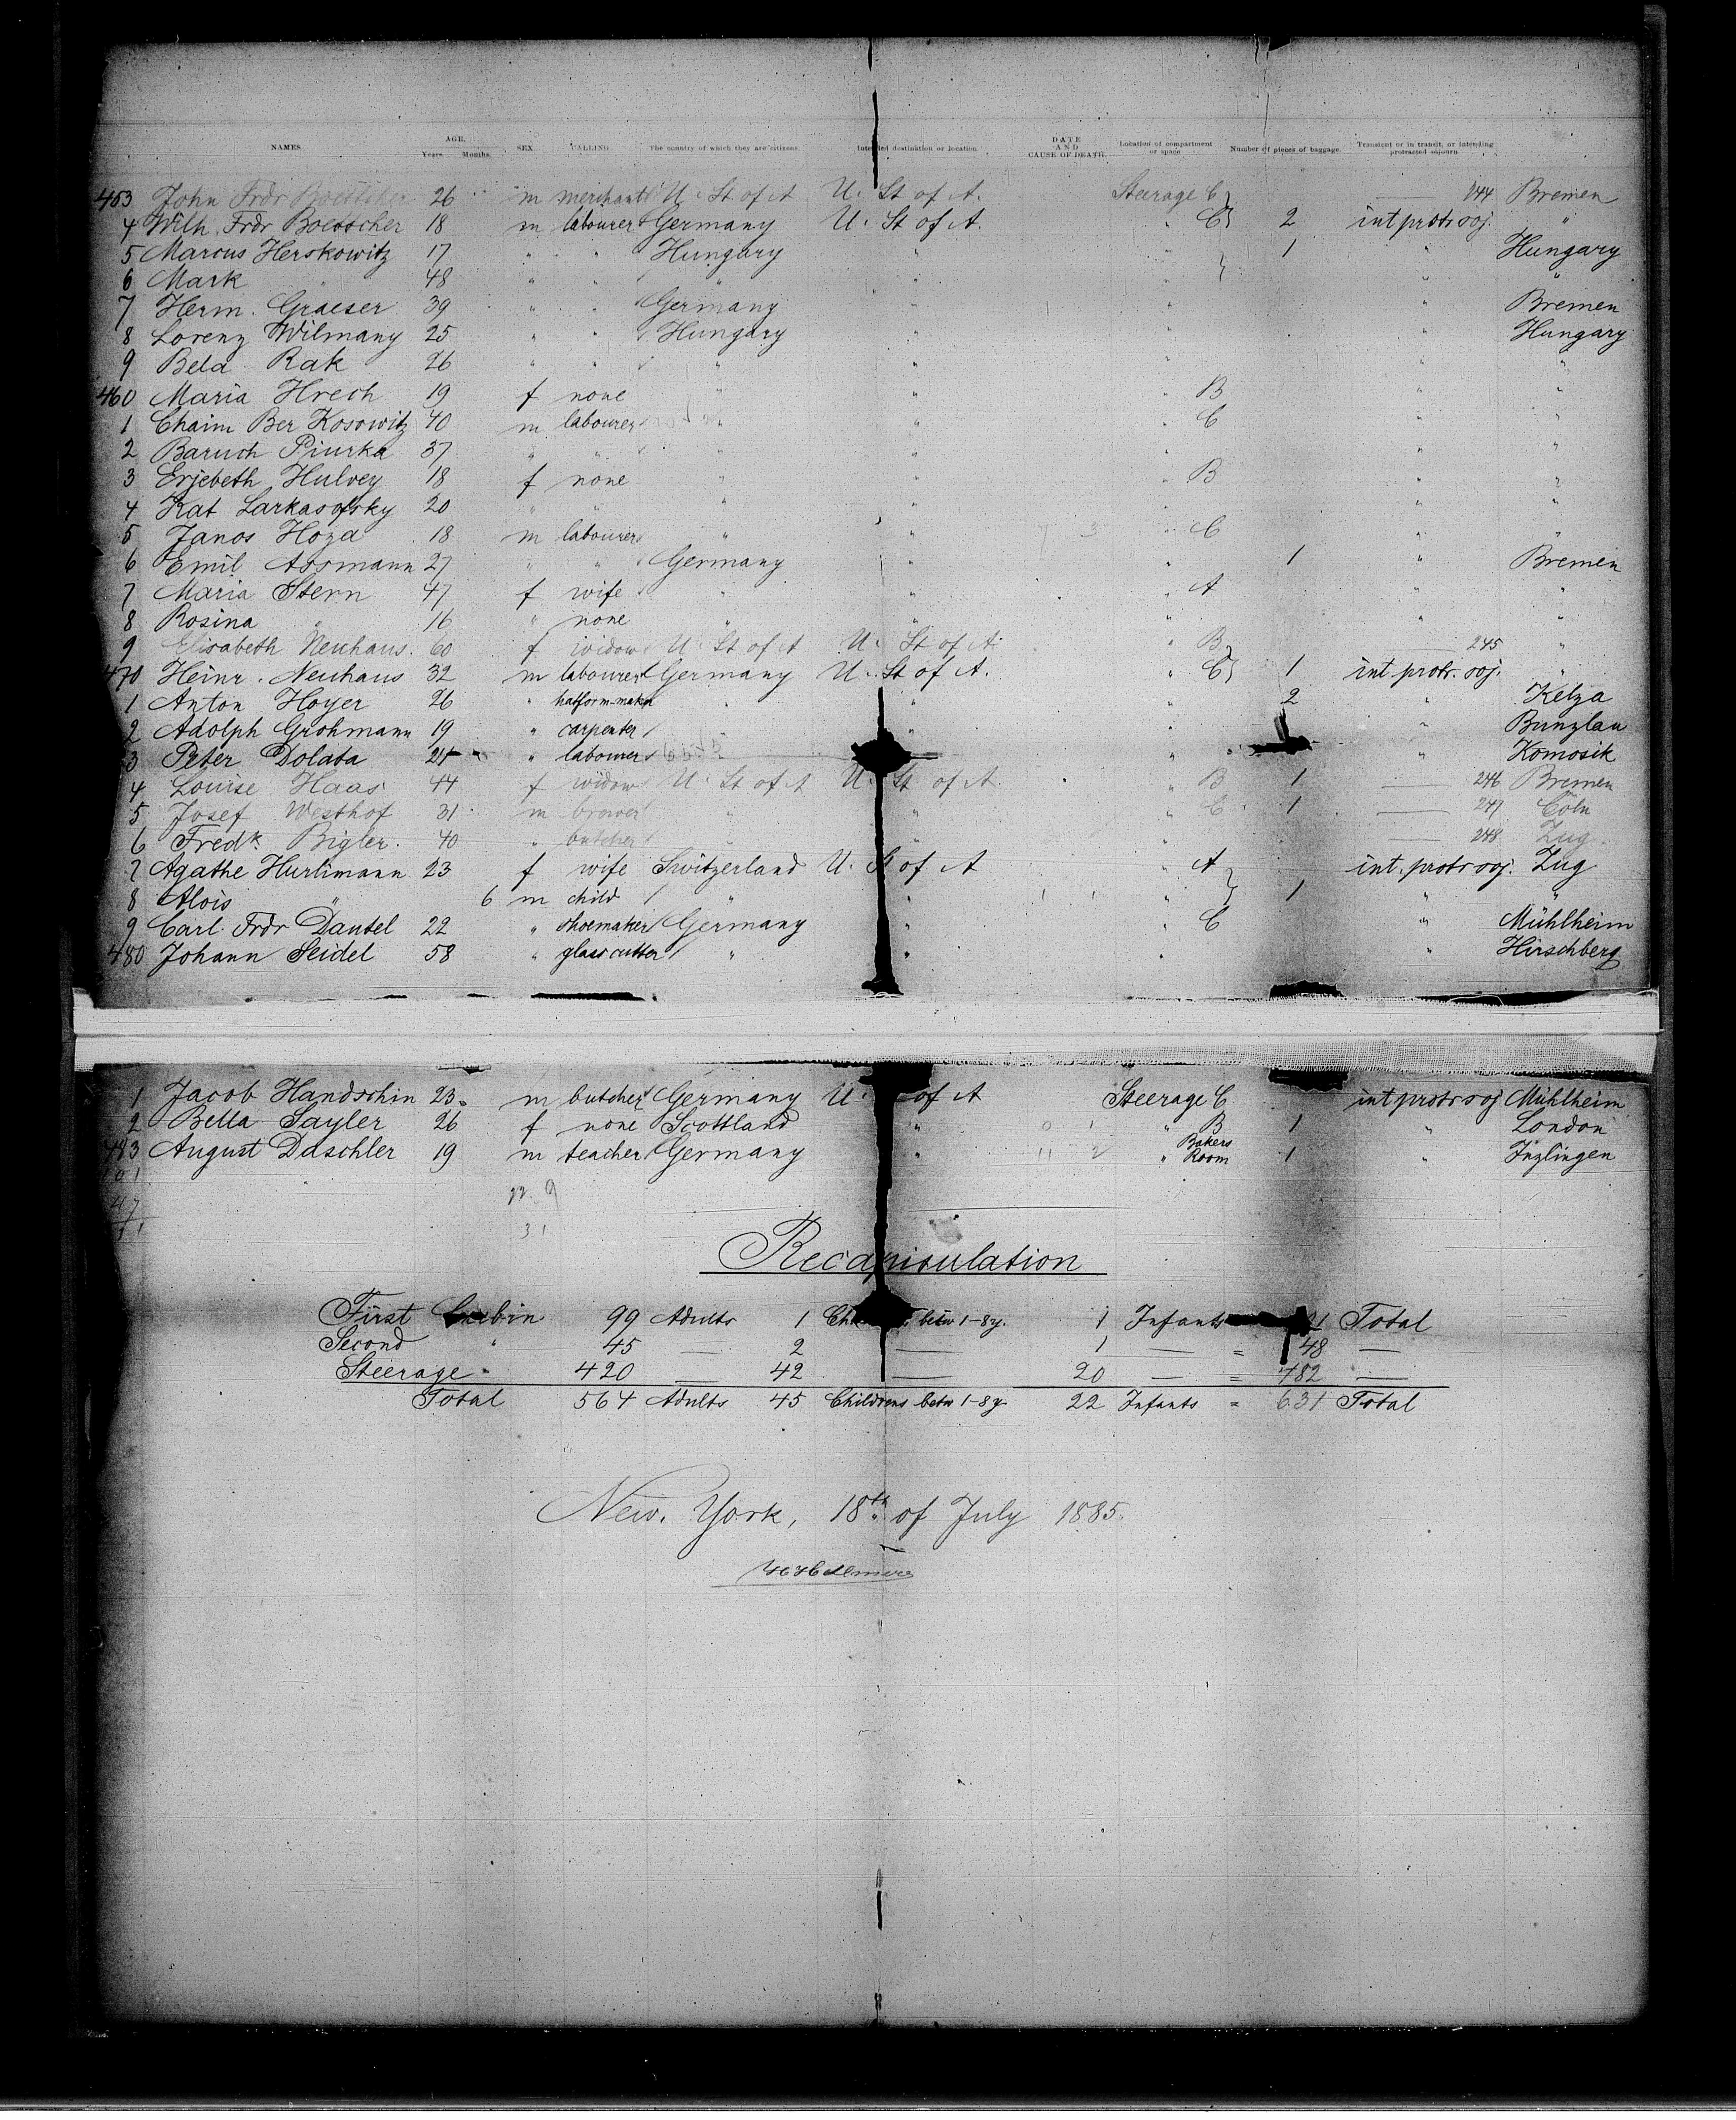 NAMES. AGE. Years Months. SEX CALLING The country of which they are citizens. Intended destination or location. DATE AND CAUSE OF DEATH. Location of compartment or space Number of pieces of baggage. Transient or in transit, or intending protracted sojourn.
453 John Frdr Boettcher 26 m merchant U. St. of A U. St of A. Steerage C 244 Bremen
4 Wilh. Frdr Boettscher 18 m labourer Germany U. St of A. " C 2 int protr soj. "
5 Marcus Herskowitz 17 " " Hungary " " 1 " Hungary
6 Mark " 48 " " " " " " "
7 Herm. Graeser 39 " " Germany " " " Bremen
8 Lorenz Wilmany 25 " " Hungary " " " Hungary
9 Bela Rak 26 " " " " " " "
460 Maria Hrech 19 f none " " " B " "
1 Chaim Ber Kosowitz 40 m labourer " " " C " "
2 Baruch Piurka 37 " " " " " " "
3 Erjebeth Hulvey 18 f none " " " B " "
4 Kat Larkasofsky 20 " " " " " " "
5 Janos Hoza 18 m labourer " " " C " "
6 Emil Assmann 27 " " Germany " " 1 " Bremen
7 Maria Stern 47 f wife " " " A " "
8 Rosina " 16 " none " " " " "
9 Elisabeth Neuhaus. 60 f widow U. St of A U. St of A. " B 245 "
470 Heinr. Neuhaus 32 m labourer Germany U. St of A. " C 1 int protr. soj. "
1 Anton Hoyer 26 " hatform-maker " " " 2 " Kelza
2 Adolph Grohmann 19 " carpenter " " " Bunzlau
3 Peter Dolata 21 " labourer " " " Komosik
4 Louise Haas 44 f widow U. St of A U. St of A. " B 1 246 Bremen
5 Josef Westhof 31 m brewer " " " C 1 247 Cöln
6 Fredk. Bigler. 40 " butcher " " " 248 Zug
7 Agathe Hurlimann 23 f wife Switzerland U. St of A " A int. protr soj. Zug
8 Alois " 6 m child " " " 1 " "
9 Carl. Frdr Dantel 22 " shoemaker Germany " " C " Mühlheim
480 Johann Seidel 58 " glass cutter " " " " Hirschberg
1 Jacob Handschin 23 m butcher Germany U. of A Steerage C int protr soj Mühlheim
2 Bella Sayler 26 f none Scottland " " B 1 " London
483 August Daschler 19 m teacher Germany " " Bakers Room 1 " Inzlingen
Recapitulation
First Cabin 99 Adults 1 betw 1-8 y. 1 Infants Total
Second " 45 — 2 — 1 — = 48 —
Steerage " 420 — 42 — 20 — = 482 —
Total 564 Adults 45 Childrens betw 1-8 y. 22 Infants = 631 Total
New. York, 18th of July 1885.